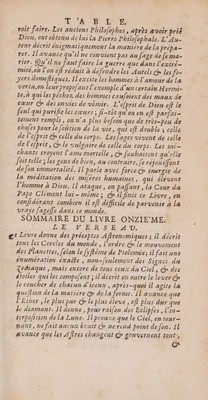 TABLE.
roit faire. Les anciens Philosophes, après avoir prié
Dieu, ont obtenu de lui la Pierre Philosophale. L'Au-
teur décrit énigmatiquement la maniere de la prépa-
rer. Il avance qu'il ne convient pas au sage de se ma-
rier. Qu'il ne faut faire la guerre que dans l'extré-
mité, où l'on est réduit à défendre les Autels & les fo-
yers domestiques. Il excite les hommes à l'amour de la
vertu, en leur proposant l'exemple d'un certain Hermite,
à qui les pêchez des hommes causoient des maux de
cœur & des envies de vômir. L'esprit de Dieu est le
seul qui purifie les cœurs; si-tôt qu'on en est parfai-
tement rempli, on n'a plus besoin que de très-peu de
choses pour le soûtien de la vie, qui est double, celle
de l'esprit & celle du corps. Les sages vivent de celle
de l'esprit, & le vulgaire de celle du corps. Les mé-
chants croyent l'ame mortelle, & souhaitent qu'elle
soit telle; les gens de bien, au contraire, se réjouissent
de son immortalité. Il parle avec force & energie de
la méditation des miseres humaines, qui élevent
l'homme à Dieu. Il attaque, en passant, la Cour du
Pape Clement lui-même; & il finit ce Livre, en
considérant combien il est difficile de parvenir à la
vraye sagesse dans ce monde.
SOMMAIRE DU LIVRE ONZIE'ME.
LE VERSEAU.
Ce Livre donne des préceptes Astronomiques; il décrit
tous les Cercles du monde, l'ordre & le mouvement
des Planettes, selon le systême de Ptolomée; il fait une
énumération exacte, non-seulement des Signes du
Zodiaque, mais encore de tous ceux du Ciel, & des
étoiles qui les composent; il décrit en outre le lever &
le coucher de chacun d'iceux, après-quoi il agite la
question de la matiere & de la forme. Il avance que
l'Ether, le plus pur & le plus élevé, est plus dur que
le diamant. Il donne, pour raison des Eclipses, l'in-
terposition de la Lune. Il prouve que le Ciel, en tour-
nant, ne fait aucun bruit & ne rend point de son. Il
avance que les Astres changent & gouvernent tout,